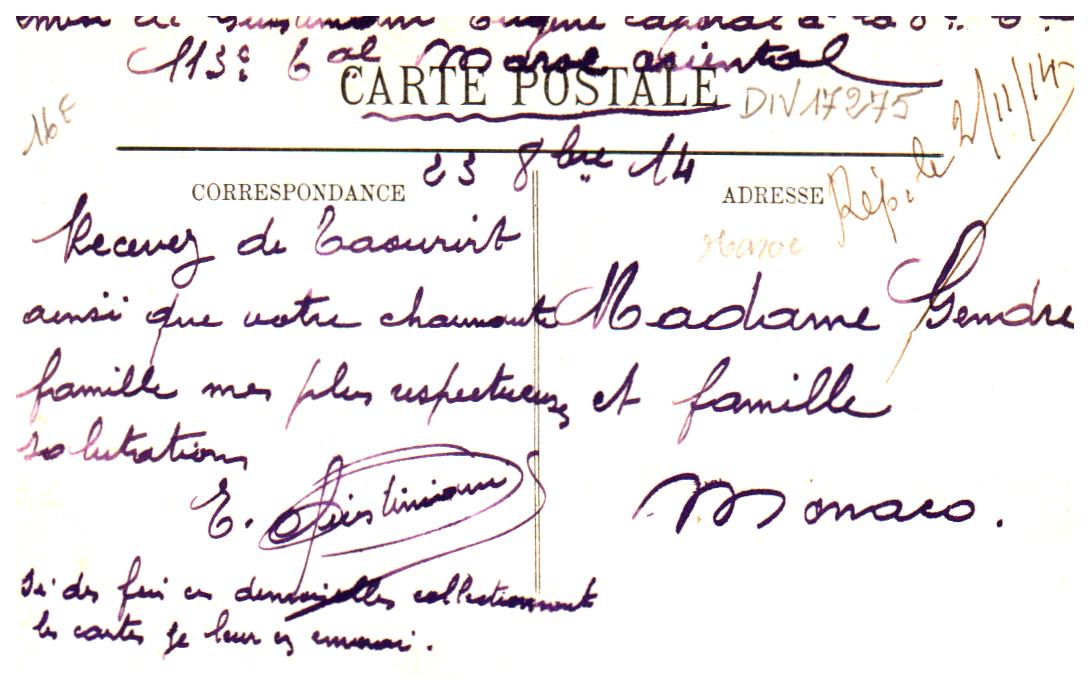 envoi de Giustiniani Eugène caporal à la 8e Cie
113e Tal Maroc oriental
CARTE POSTALE
DIV17275
16F
Rép. le 2/11/14
23 8bre 14
CORRESPONDANCE
ADRESSE
Maroc
Recevez de Taourirt
ainsi que votre charmante
famille mes plus respectueuses
salutations
E. Giustiniani
Si des fois ces demoiselles collectionnent
les cartes je leur en enverrai.
Madame Gendre
et famille
Monaco.